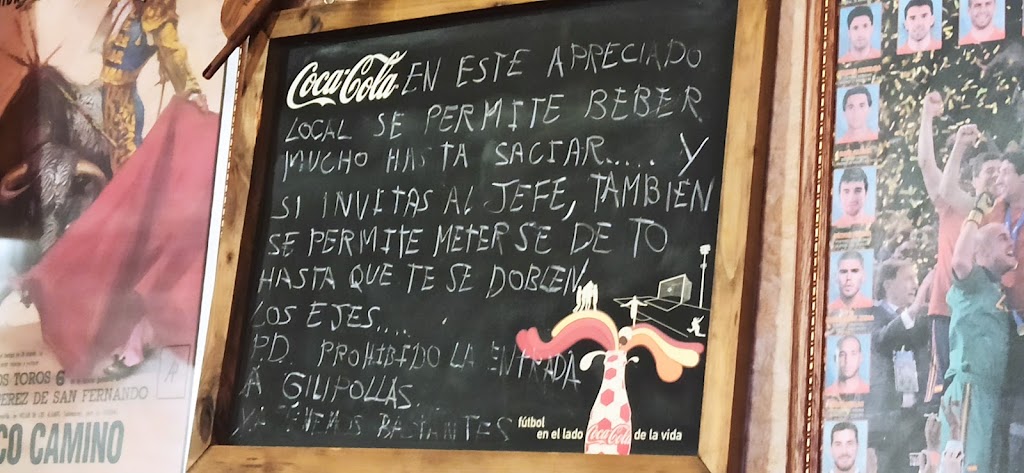 Coca-Cola EN ESTE APRECIADO
LOCAL SE PERMITE BEBER
MUCHO HASTA SACIAR..... Y
SI INVITAS AL JEFE, TAMBIÉN
SE PERMITE METERSE DE TO
HASTA QUE TE SE DOBLEN
LOS EJES....
P.D. PROHIBIDO LA ENTRADA
A GILIPOLLAS
YA TENEMOS BASTANTES
fútbol
en el lado Coca-Cola de la vida
OS TOROS 6
PEREZ DE SAN FERNANDO
CO CAMINO